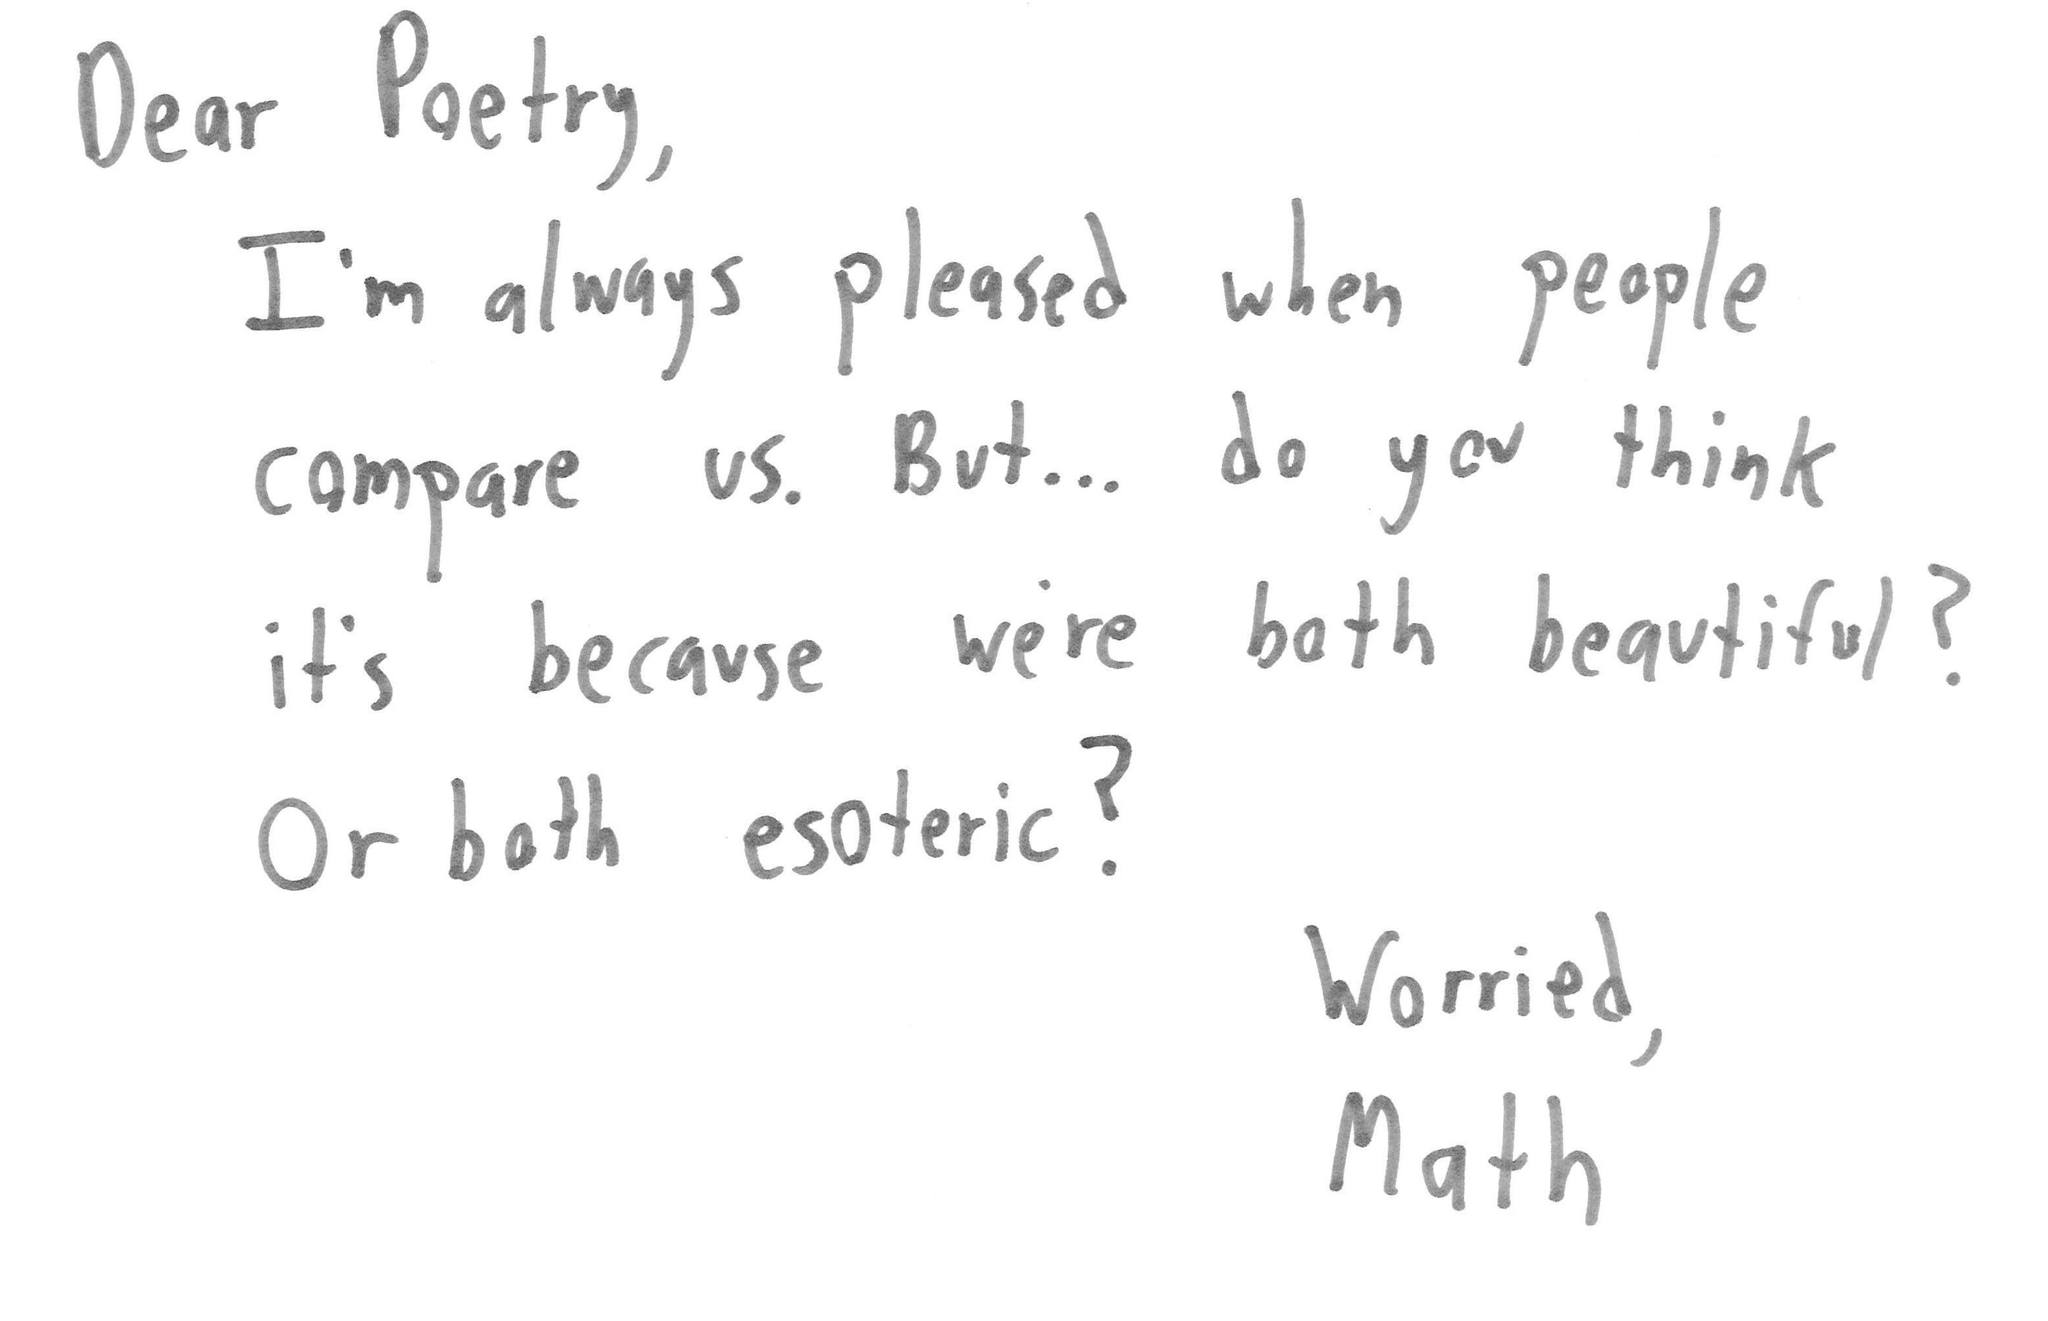 Dear Poetry,
I'm always pleased when people
compare us. But... do you think
it's because we're both beautiful?
Or both esoteric?
Worried,
Math